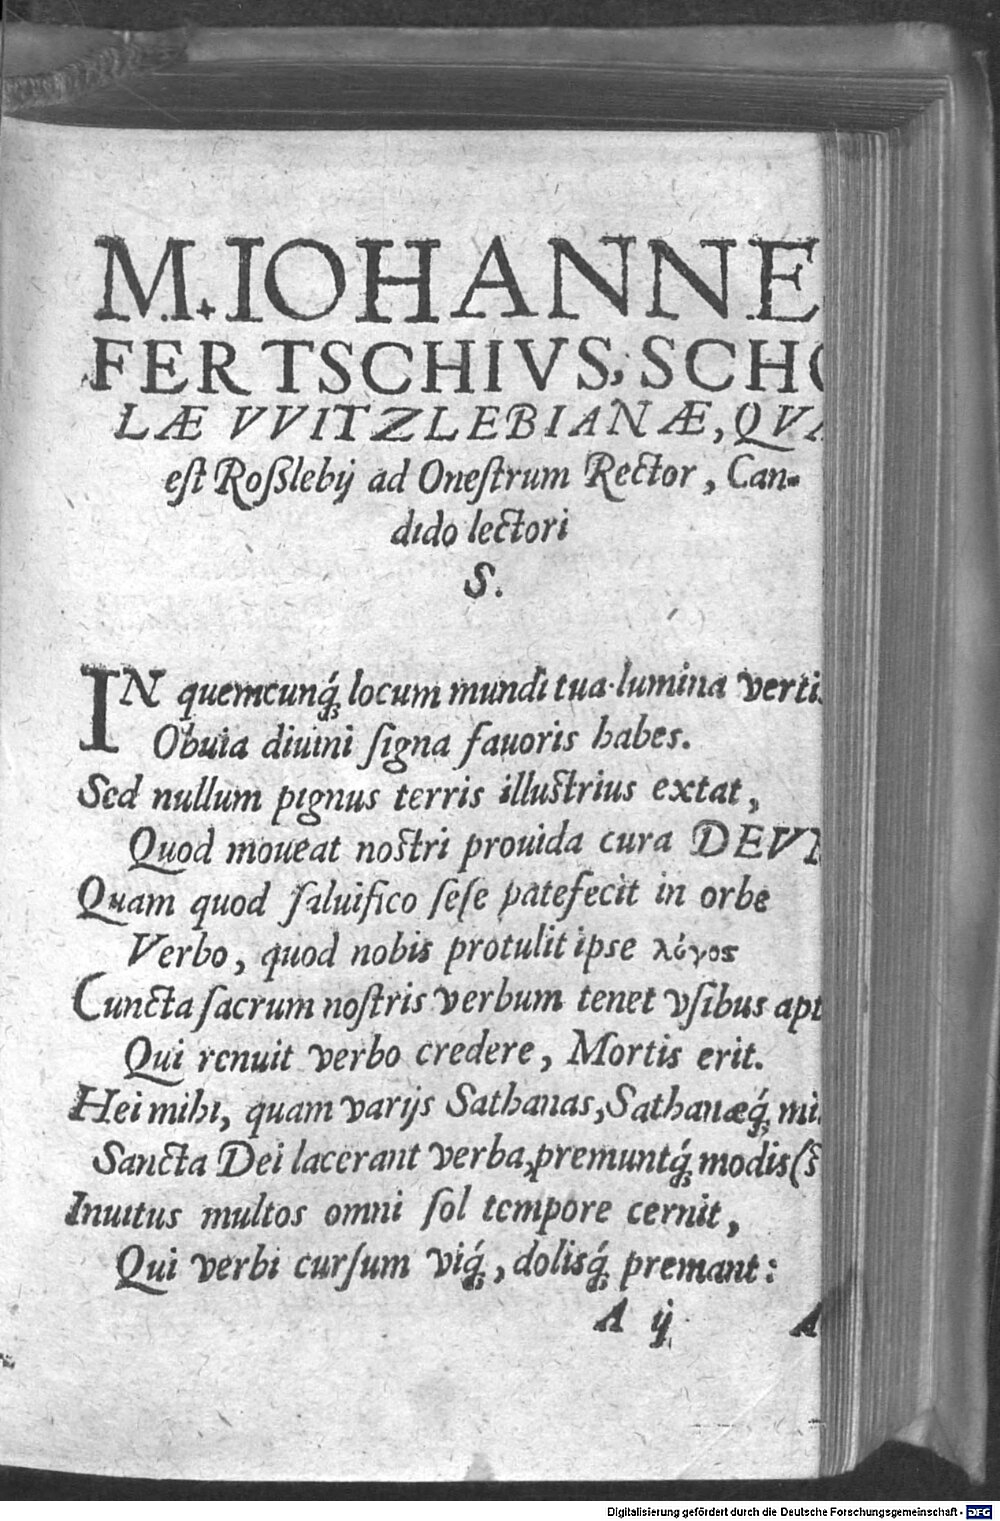 M. IOHANNE
FERTSCHIVS, SCHO
LÆ VVITZLEBIANÆ, QVA
est Roßlebij ad Onestrum Rector, Can-
dido lectori
S.
IN quemcunq́; locum mundi tua lumina vertis
Obuia diuini signa fauoris habes.
Sed nullum pignus terris illustrius extat,
Quod moueat nostri prouida cura DEVM
Quam quod saluifico sese patefecit in orbe
Verbo, quod nobis protulit ipse λόγος
Cuncta sacrum nostris verbum tenet vsibus apt
Qui renuit verbo credere, Mortis erit.
Hei mihi, quam varijs Sathanas, Sathanæq́; mi
Sancta Dei lacerant verba, premuntq́; modis (st
Inuitus multos omni sol tempore cernit,
Qui verbi cursum viq́;, dolisq́; premant:
A ij
A
Digitalisierung gefördert durch die Deutsche Forschungsgemeinschaft - DFG